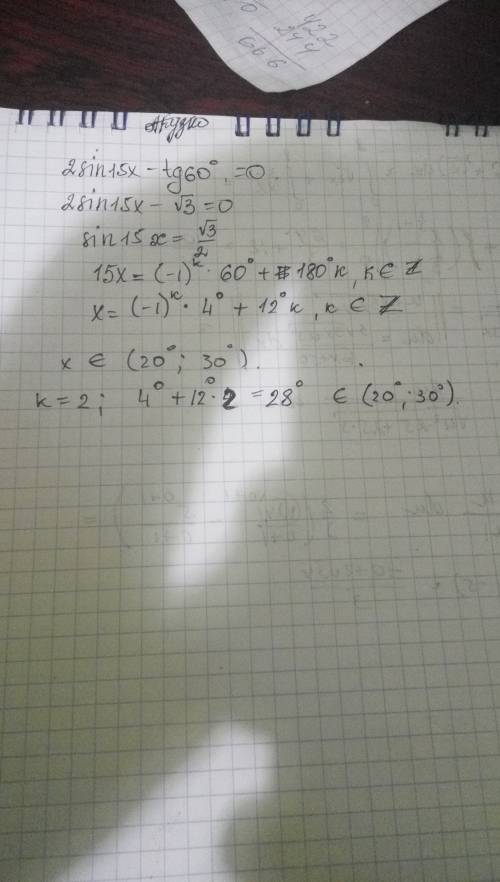 422
244
666
2sin15x - tg60° = 0.
2sin15x - √3 = 0
sin15x = √3/2
15x = (-1)^k · 60° + 180°k, k ∈ Z
x = (-1)^k · 4° + 12°k, k ∈ Z
x ∈ (20°; 30°).
k = 2; 4° + 12° · 2 = 28° ∈ (20°; 30°).